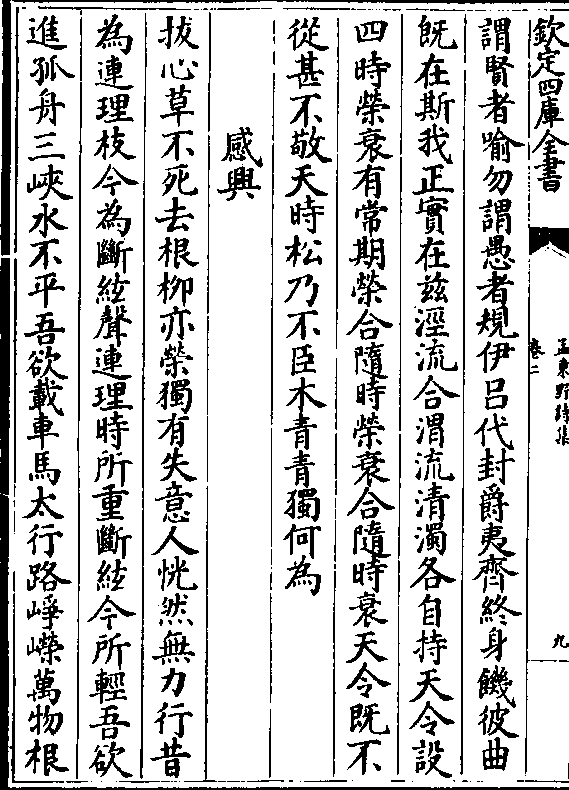 欽定四庫全書
孟東野詩集
卷二
九
謂賢者喻勿謂愚者規伊呂代封爵夷齊終身饑彼曲
既在斯我正實在兹涇流合渭流清濁各自持天令設
四時榮衰有常期榮合隨時榮衰合隨時衰天令既不
從甚不敬天時松乃不臣木青青獨何為
感興
拔心草不死去根栁亦榮獨有失意人恍然無力行昔
為連理枝今為斷絃聲連理時所重斷絃今所輕吾欲
進孤舟三峽水不平吾欲載車馬太行路崢嶸萬物根